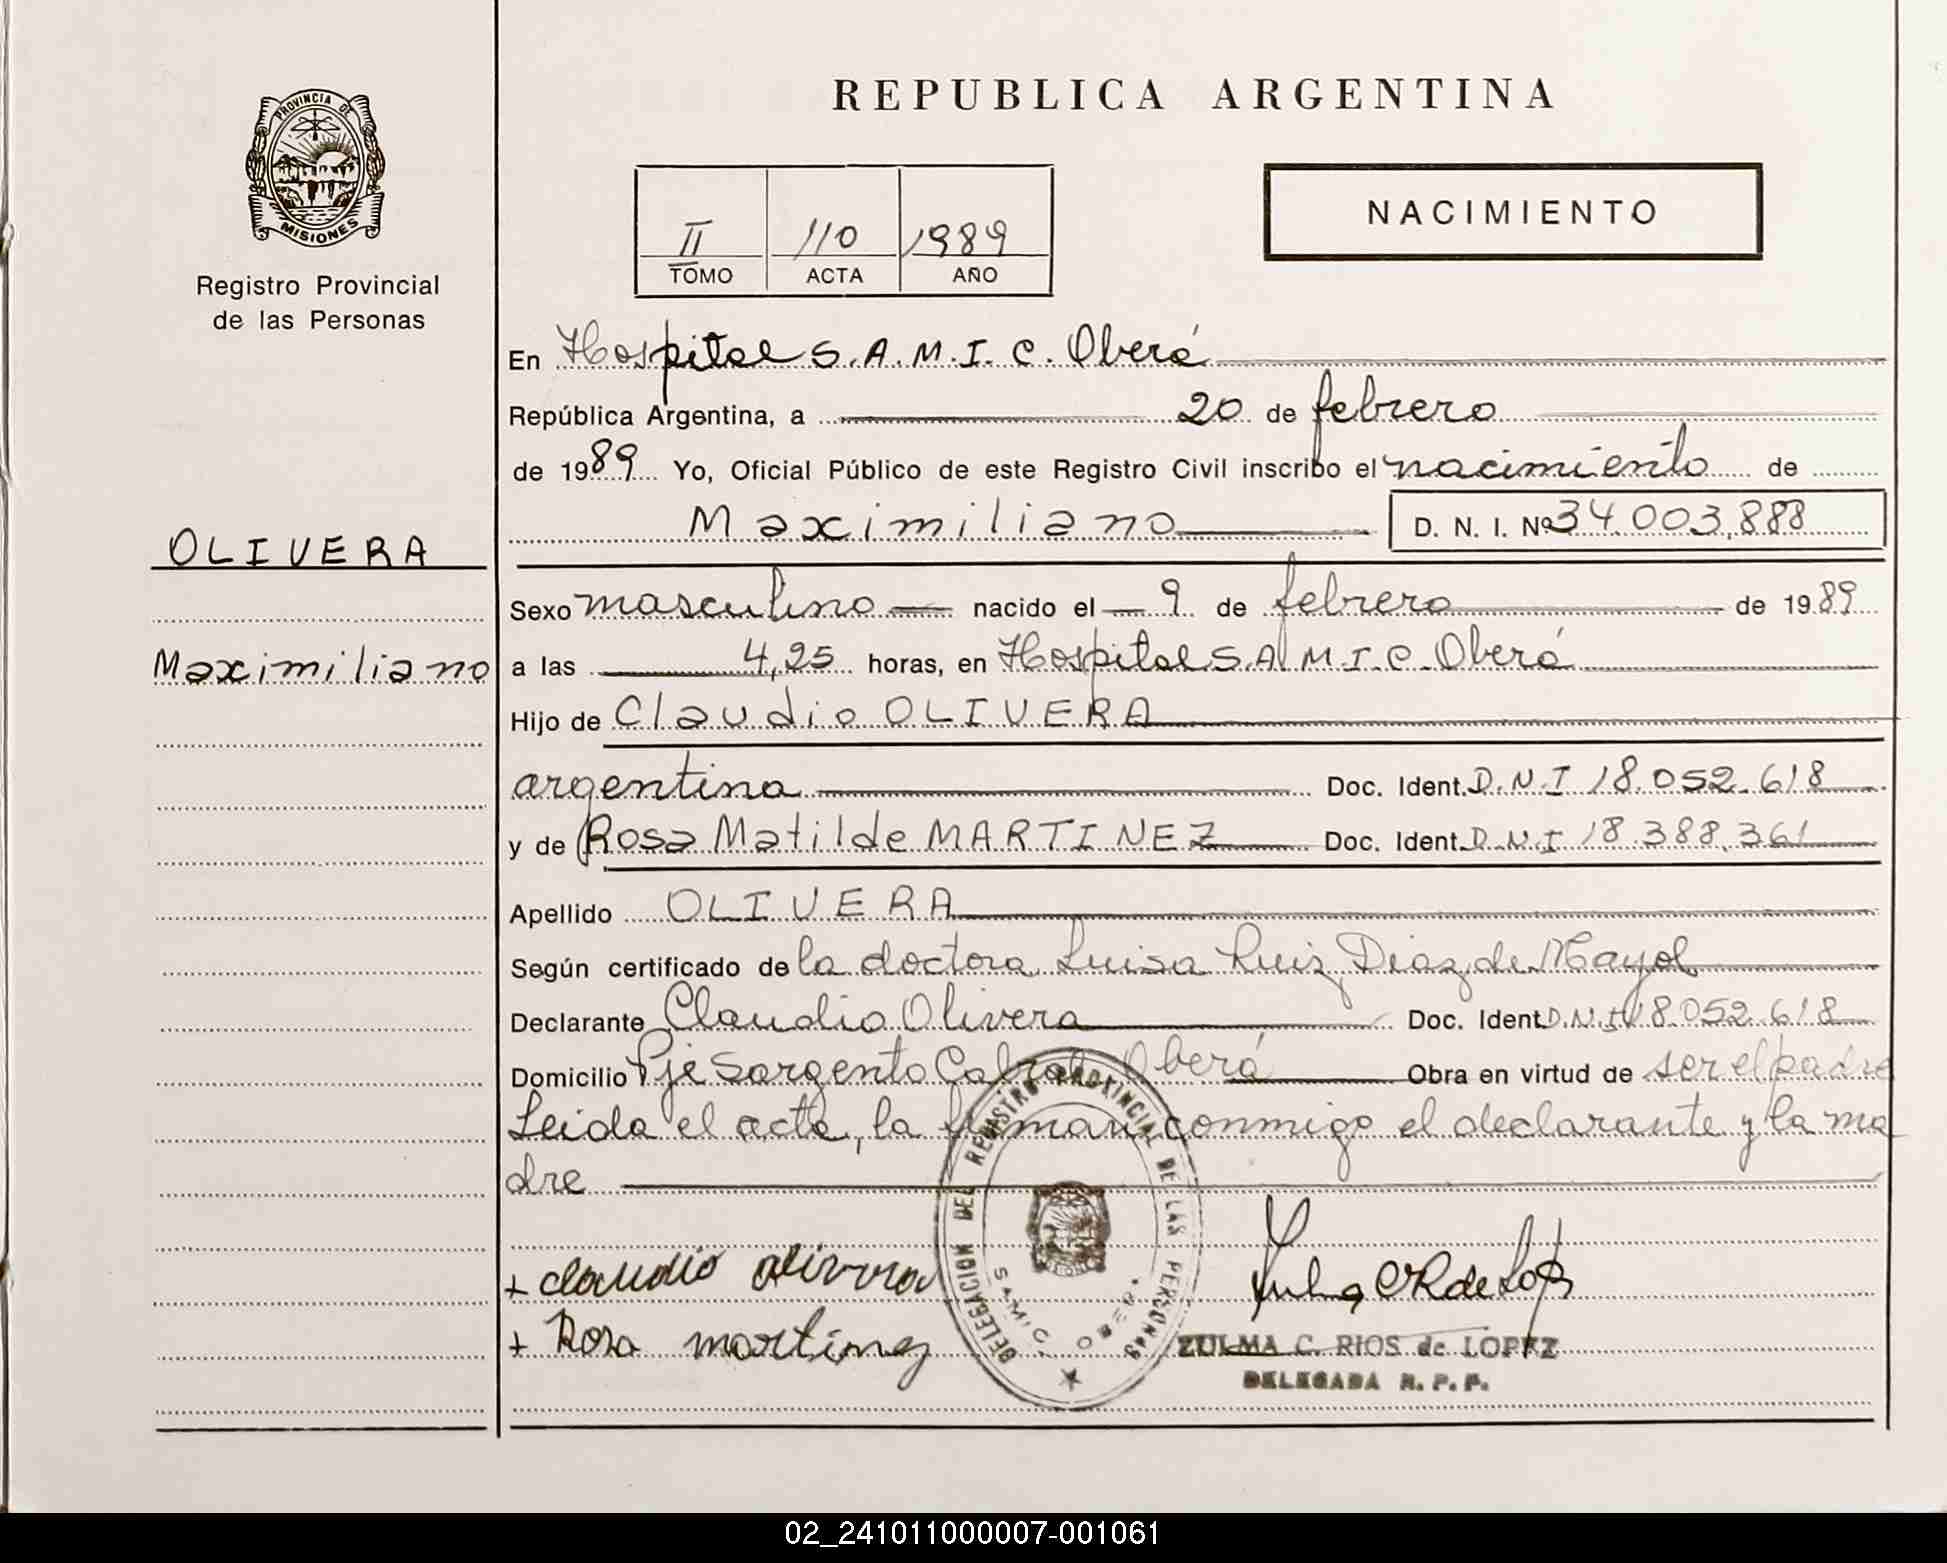 PROVINCIA DE
MISIONES
Registro Provincial
de las Personas
OLIVERA
Maximiliano
REPUBLICA ARGENTINA
II 110 1989
TOMO ACTA AÑO
NACIMIENTO
En Hospital S.A.M.I.C. Oberá
República Argentina, a 20 de febrero
de 1989 Yo, Oficial Público de este Registro Civil inscribo el nacimiento de
Maximiliano D. N. I. Nº 34.003.888
Sexo masculino nacido el 9 de febrero de 1989
a las 4,25 horas, en Hospital S.A.M.I.C. Oberá
Hijo de Claudio OLIVERA
argentina Doc. Ident. D.N.I 18.052.618
y de Rosa Matilde MARTINEZ Doc. Ident. D.N.I 18.388.361
Apellido OLIVERA
Según certificado de la doctora Luisa Ruiz Diaz de Mayol
Declarante Claudio Olivera Doc. Ident. D.N.I 18.052.618
Domicilio Pje Sargento Cabral Oberá Obra en virtud de ser el padre
Leida el acta, la firman conmigo el declarante y la ma
dre
+ claudio olivera
+ Rosa martinez
DELEGACION DEL REGISTRO PROVINCIAL DE LAS PERSONAS
SAMIC OBERA
ZULMA C. RIOS de LOPEZ
DELEGADA R. P. P.
02_241011000007-001061